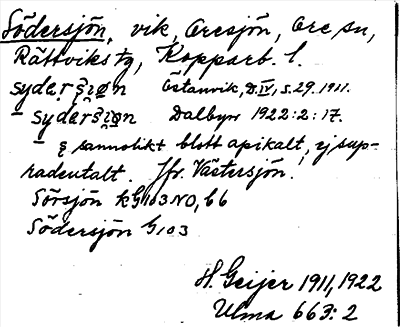 Södersjön, vik, Oresjön, Ore sn,
Rättviks tg, Kopparb. l.
sydẹr ʂiøn Östanvik, D.IV, s.29. 1911.
- sydẹrʂiøn Dalbyn 1922:2:17.
- ʂ sannolikt blott apikalt, ej sup-
radentalt. Jfr. Västersjön.
Sörsjön kG103 NO, b6
Södersjön G103
H. Geijer 1911, 1922
Ulma 663:2